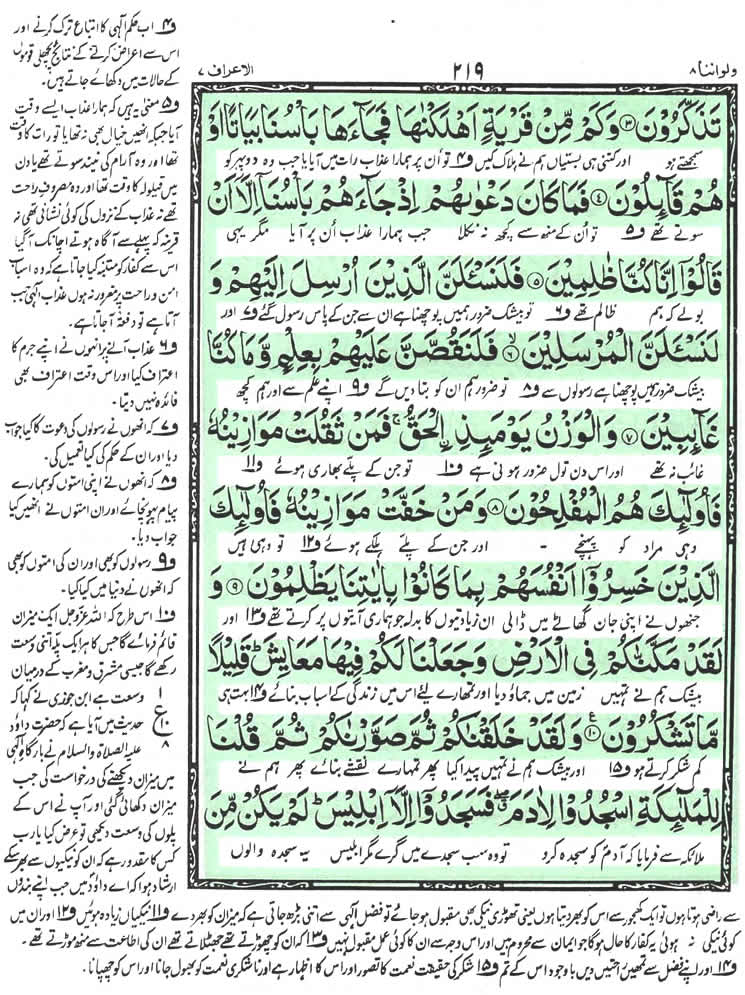 ولواننا ۸
۲۱۹
الاعراف ۷
تَذَكَّرُوْنَ ۳ وَكَمْ مِّنْ قَرْيَةٍ اَهْلَكْنٰهَا فَجَآءَهَا بَاْسُنَا بَيَاتًا اَوْ
سمجھتے ہو اور کتنی ہی بستیاں ہم نے ہلاک کیں ف۴ تو اُن پر ہمارا عذاب رات میں آیا یا جب وہ دوپہر کو
هُمْ قَآئِلُوْنَ ۴ فَمَا كَانَ دَعْوٰىهُمْ اِذْ جَآءَهُمْ بَاْسُنَآ اِلَّآ اَنْ
سوتے تھے ف۵ تو اُن کے منھ سے کچھ نہ نکلا جب ہمارا عذاب اُن پر آیا مگر یہی
قَالُوْٓا اِنَّا كُنَّا ظٰلِمِيْنَ ۵ فَلَنَسْـَٔلَنَّ الَّذِيْنَ اُرْسِلَ اِلَيْهِمْ وَ
بولے کہ ہم ظالم تھے ف۶ تو بیشک ضرور ہمیں پوچھنا ہے ان سے جن کے پاس رسول گئے ف۷ اور
لَنَسْـَٔلَنَّ الْمُرْسَلِيْنَ ۶ فَلَنَقُصَّنَّ عَلَيْهِمْ بِعِلْمٍ وَّمَا كُنَّا
بیشک ضرور ہمیں پوچھنا ہے رسولوں سے ف۸ تو ضرور ہم ان کو بتا دیں گے ف۹ اپنے علم سے اور ہم کچھ
غَآئِبِيْنَ ۷ وَالْوَزْنُ يَوْمَئِذِ ِۨالْحَقُّ ۚ فَمَنْ ثَقُلَتْ مَوَازِيْنُهٗ
غائب نہ تھے اور اس دن تول ضرور ہونی ہے ف۱۰ تو جن کے پلے بھاری ہوئے ف۱۱
فَاُولٰٓئِكَ هُمُ الْمُفْلِحُوْنَ ۸ وَمَنْ خَفَّتْ مَوَازِيْنُهٗ فَاُولٰٓئِكَ
وہی مراد کو پہنچے - اور جن کے پلے ہلکے ہوئے ف۱۲ تو وہی ہیں
الَّذِيْنَ خَسِرُوْٓا اَنْفُسَهُمْ بِمَا كَانُوْا بِاٰيٰتِنَا يَظْلِمُوْنَ ۹ وَ
جنھوں نے اپنی جان گھاٹے میں ڈالی ان زیادتیوں کا بدلہ جو ہماری آیتوں پر کرتے تھے ف۱۳ اور
لَقَدْ مَكَّنّٰكُمْ فِى الْاَرْضِ وَجَعَلْنَا لَكُمْ فِيْهَا مَعَايِشَ ؕ قَلِيْلًا
بیشک ہم نے تمہیں زمین میں جماؤ دیا اور تمھارے لئے اس میں زندگی کے اسباب بنائے ف۱۴ بہت ہی
مَّا تَشْكُرُوْنَ ۱۰ وَلَقَدْ خَلَقْنٰكُمْ ثُمَّ صَوَّرْنٰكُمْ ثُمَّ قُلْنَا
کم شکر کرتے ہو ف۱۵ اور بیشک ہم نے تمہیں پیدا کیا پھر تمہارے نقشے بنائے پھر ہم نے
لِلْمَلٰٓئِكَةِ اسْجُدُوْا لِاٰدَمَ ۖ فَسَجَدُوْٓا اِلَّآ اِبْلِيْسَ ؕ لَمْ يَكُنْ مِّنَ
ملائکہ سے فرمایا کہ آدم کو سجدہ کرو تو وہ سب سجدے میں گرے مگر ابلیس یہ سجدہ والوں
ف۴ اب حکم الٰہی کا اتباع ترک کرنے اور
اس سے اعراض کرنے کے نتائج پچھلی قوموں
کے حالات میں دکھائے جاتے ہیں۔
ف۵ معنی یہ ہیں کہ ہمارا عذاب ایسے وقت
آیا جبکہ انھیں خیال بھی نہ تھا یا تو رات کا وقت
تھا اور وہ آرام کی نیند سوتے تھے یا دن
میں قیلولہ کا وقت تھا اور وہ مصروف راحت
تھے نہ عذاب کے نزول کی کوئی نشانی تھی نہ
قرینہ کہ پہلے سے آگاہ ہوتے اچانک آ گیا
اس سے کفار کو متنبہ کیا جاتا ہے کہ وہ اسباب
امن و راحت پر مغرور نہ ہوں عذاب الٰہی جب
آتا ہے تو دفعۃً آ جاتا ہے۔
ف۶ عذاب آنے پر انھوں نے اپنے جرم کا
اعتراف کیا اور اس وقت اعتراف بھی
فائدہ نہیں دیتا۔
ف۷ کہ انھوں نے رسولوں کی دعوت کا کیا جواب
دیا اور ان کے حکم کی کیا تعمیل کی۔
ف۸ کہ انھوں نے اپنی امتوں کو ہمارے
پیام پہونچائے اور ان امتوں نے انھیں کیا
جواب دیا۔
ف۹ رسولوں کو بھی اور ان کی امتوں کو بھی
کہ انھوں نے دنیا میں کیا کیا۔
ف۱۰ اس طرح کہ اللہ عزوجل ایک میزان
قائم فرمائے گا جس کا ہر ایک پلہ اتنی وسعت
رکھے گا جیسی مشرق و مغرب کے درمیان
وسعت ہے ابن جوزی نے کہا کہ
حدیث میں آیا ہے کہ حضرت داؤد
علیہ الصلاۃ والسلام نے بارگاہ الٰہی
میں میزان دیکھنے کی درخواست کی جب
میزان دکھائی گئی اور آپ نے اس کے
پلوں کی وسعت دیکھی تو عرض کیا یارب
کس کا مقدور ہے کہ ان کو نیکیوں سے بھر سکے
ارشاد ہوا کہ اے داؤد میں جب اپنے بندوں
۱
ع
۱۰
۸
سے راضی ہوتا ہوں تو ایک کھجور سے اس کو بھر دیتا ہوں یعنی تھوڑی نیکی بھی مقبول ہو جائے تو فضل الٰہی سے اتنی بڑھ جاتی ہے کہ میزان کو بھر دے ف۱۱ نیکیاں زیادہ ہوئیں ف۱۲ اور ان میں
کوئی نیکی نہ ہوئی یہ کفار کا حال ہوگا جو ایمان سے محروم ہیں اور اس وجہ سے ان کا کوئی عمل مقبول نہیں ف۱۳ کہ ان کو چھوڑتے تھے جھٹلاتے تھے ان کی اطاعت سے منھ موڑتے تھے۔
ف۱۴ اور اپنے فضل سے تمھیں راحتیں دیں باوجود اس کے تم ف۱۵ شکر کی حقیقت نعمت کا تصور اور اس کا اظہار ہے اور ناشکری نعمت کو بھول جانا اور اس کو چھپانا۔